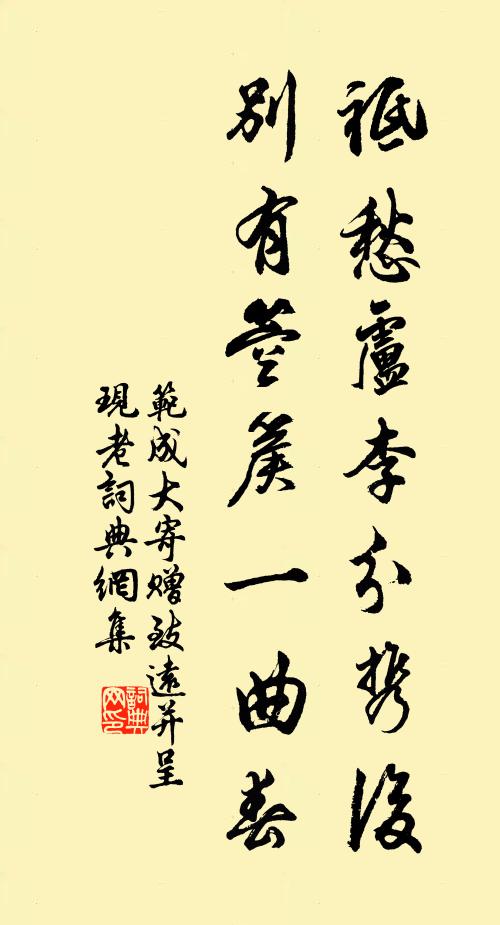 祗愁盧李分携後
別有箜篌一曲春
範成大寄贈致遠并呈
現老詞典網集
詞典网印